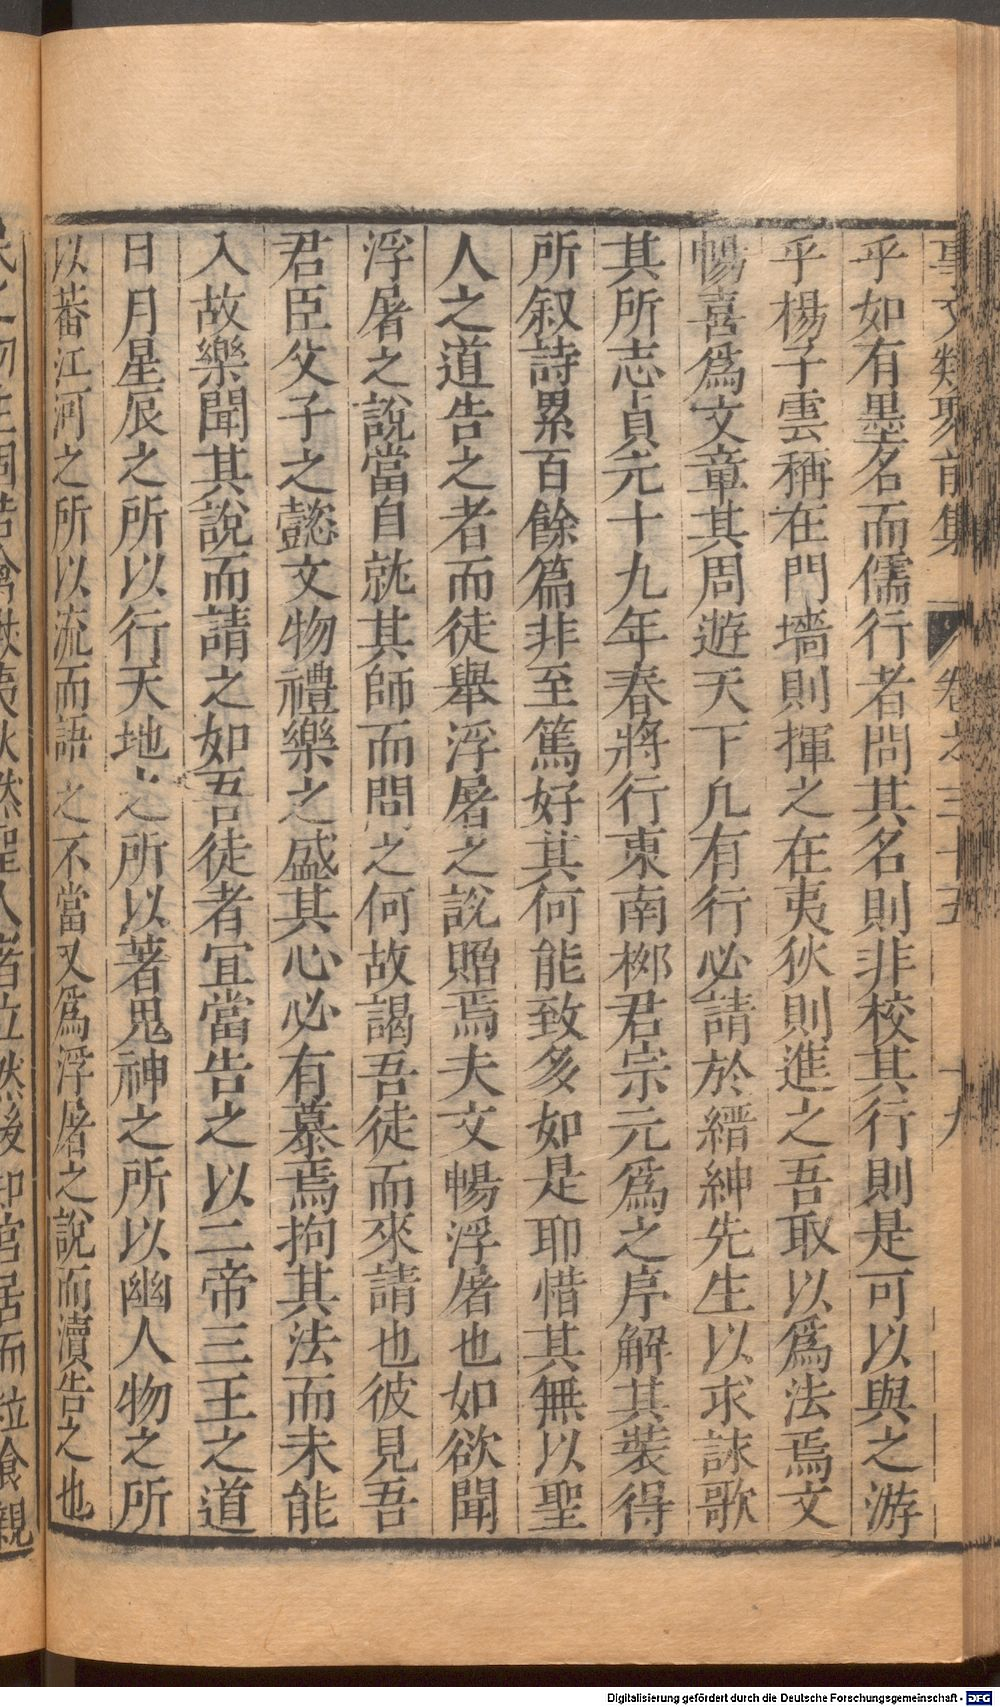 事文類聚前集 卷之三十五 十九
乎如有墨名而儒行者問其名則非校其行則是可以與之游
乎楊子雲稱在門墻則揮之在夷狄則進之吾取以爲法焉文
暢喜爲文章其周遊天下凡有行必請於縉紳先生以求詠歌
其所志貞元十九年春將行東南栁君宗元爲之序解其裝得
所叙詩累百餘篇非至篤好其何能致多如是耶惜其無以聖
人之道告之者而徒舉浮屠之說贈焉夫文暢浮屠也如欲聞
浮屠之說當自就其師而問之何故謁吾徒而來請也彼見吾
君臣父子之懿文物禮樂之盛其心必有慕焉拘其法而未能
入故樂聞其說而請之如吾徒者宜當告之以二帝三王之道
日月星辰之所以行天地之所以著鬼神之所以幽人物之所
以蕃江河之所以流而語之不當又爲浮屠之說而瀆告之也
民之初生固若禽獸夷狄然聖人者立然後知宮居而粒食親
Digitalisierung gefördert durch die Deutsche Forschungsgemeinschaft - DFG